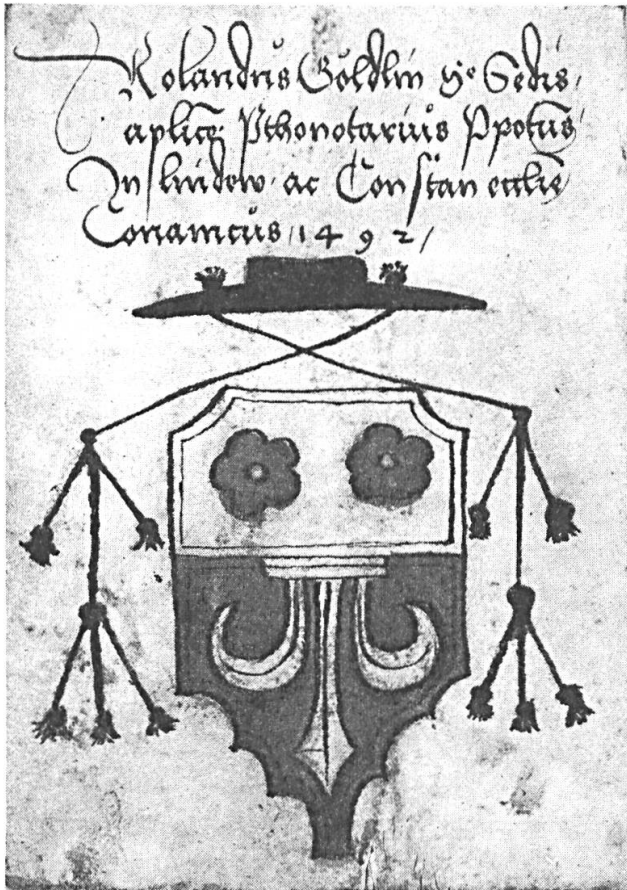 Rolandus Göldlin ste Sedis
aplice Pthonotarius Ppotus
In lindow ac Constan ecclie
Canonicus 1492